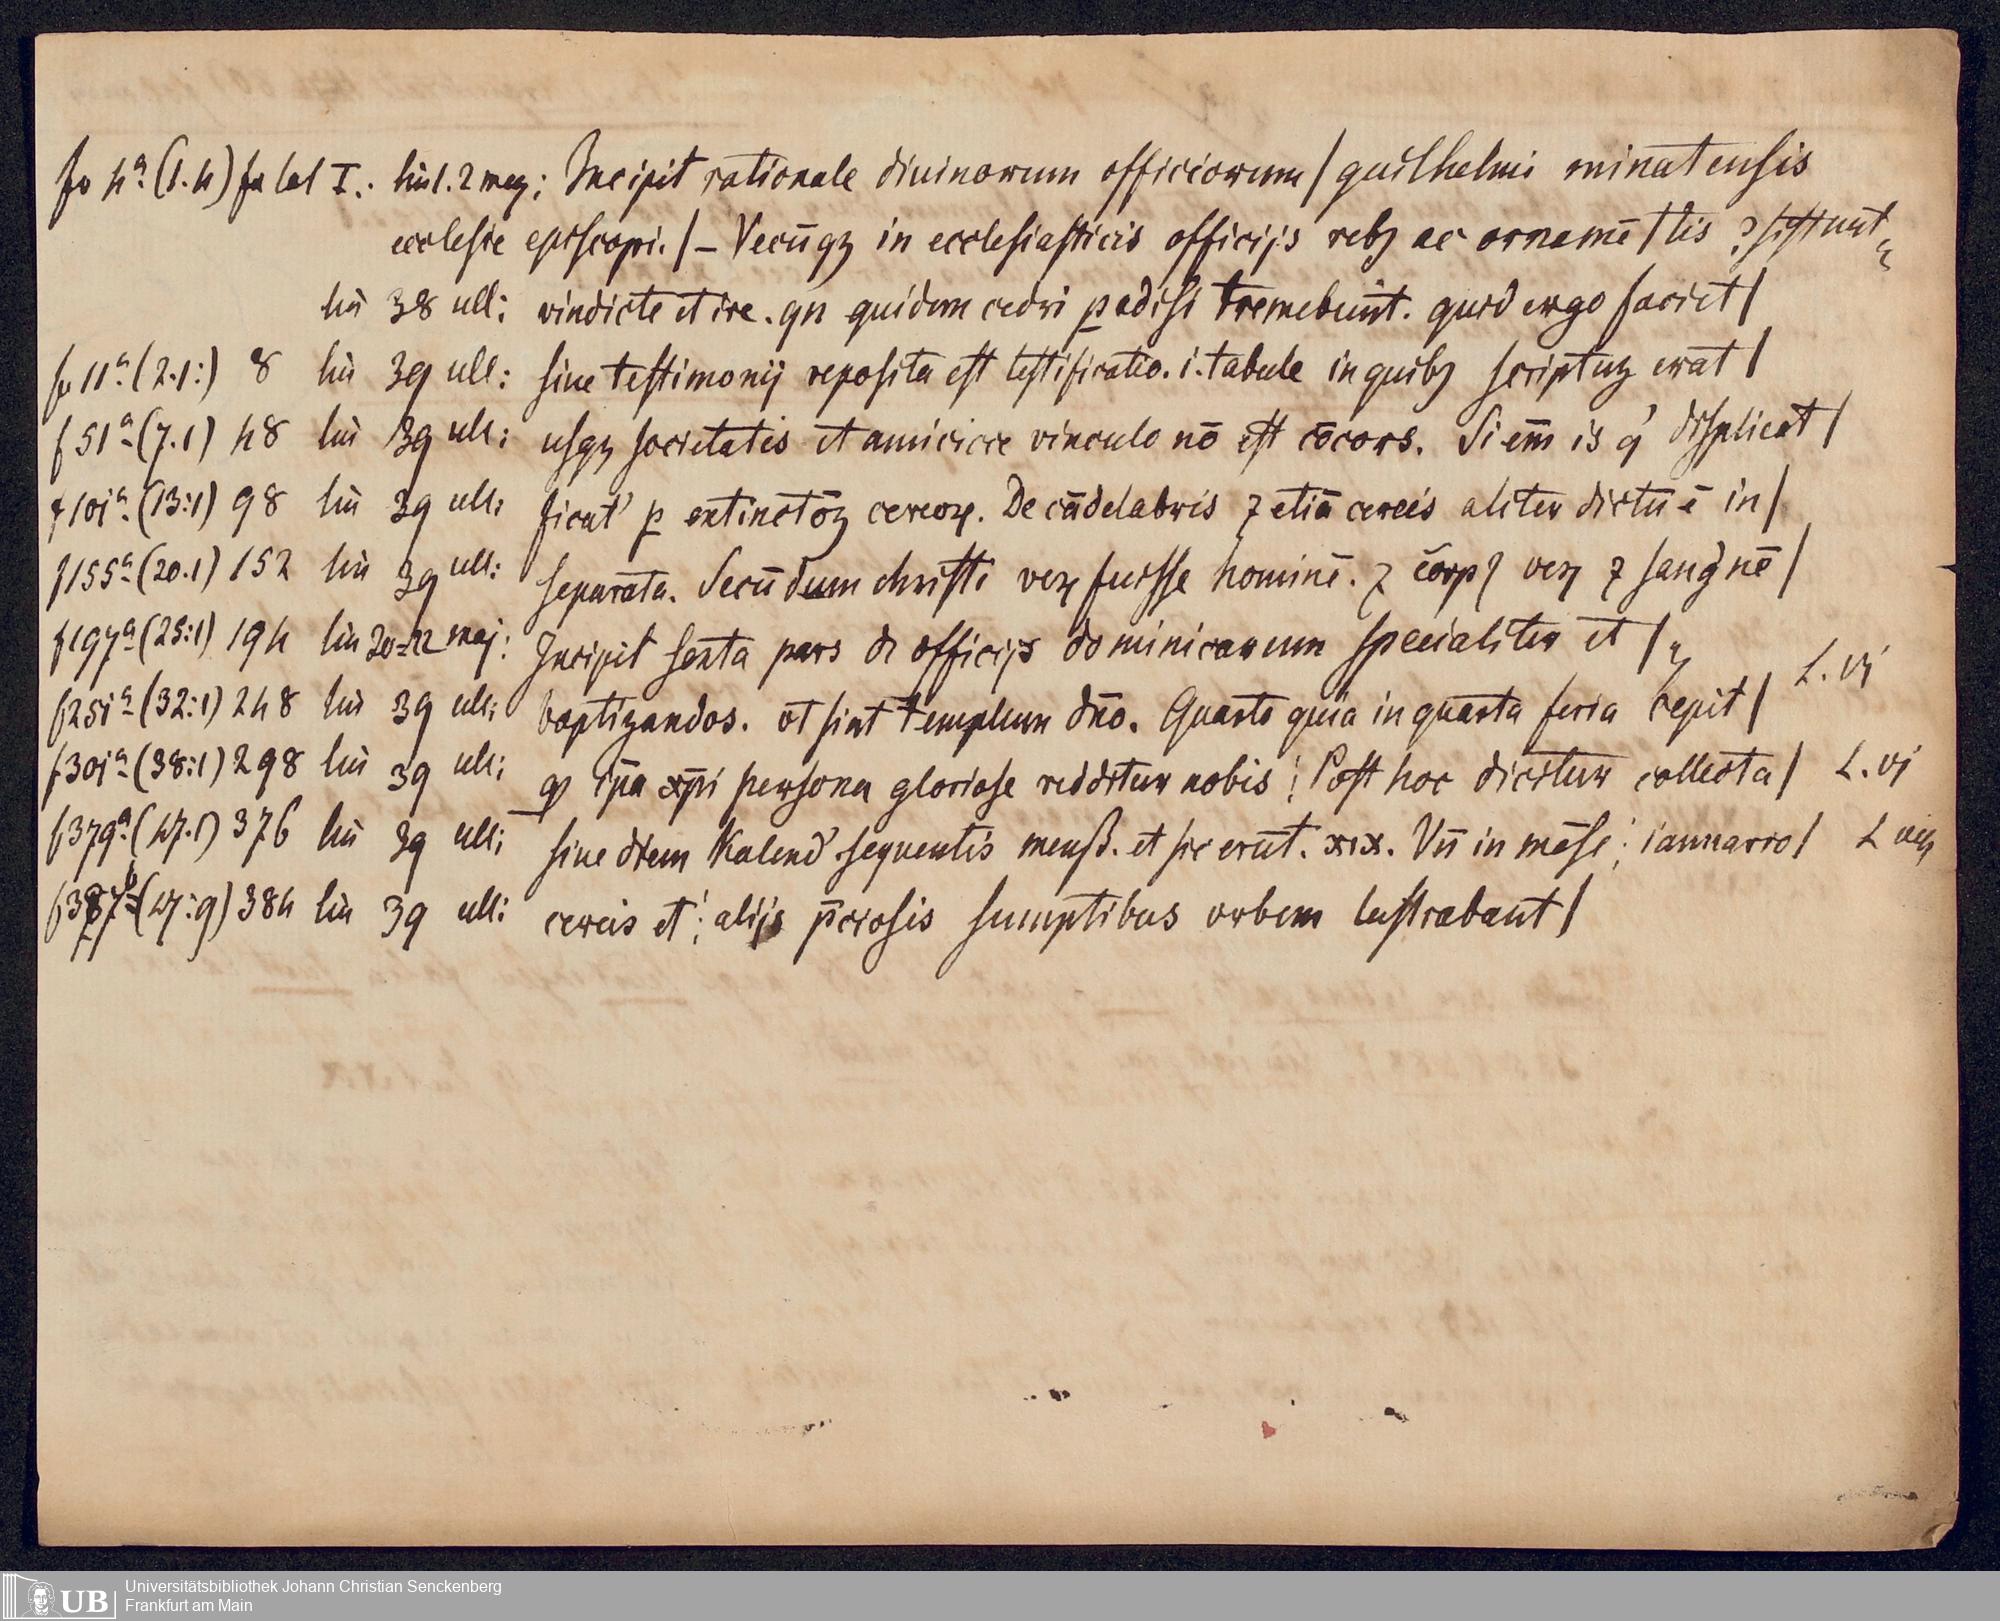 fo 4ª. (1.4) fa lal I.: lin 1. 2 maj; Incipit rationale diuinorum officiorum / guilhelmi minatensis
ecclesie episcopi. / – Vecūqȝ in ecclesiasticis officijs rebȝ ac ornamē / tis ꝯsistunt
lin 38 ull: vindicte et ire. qn quidem cedri padisi tremebunt. quid ergo faciet /
fo 11ª. (2.1:) 8 lin 39 ull: siue testimonij reposita est testificatio. i. tabule in quibȝ scriptuȝ erat /
f 51ª (7.1) 48 lin 39 ull: usqȝ societatis et amicicie vinculo nō est cōcors. Si em̄ is q' displicet /
f 101ª. (13:1) 98 lin 39 ull: ficat' p̲ extinctōȝ cereoꝝ. De cādelabris ⁊ etiā cereis aliter dictū ē in /
f 155ª (20.1) 152 lin 39 ull: separata. Secūdum christi veꝝ fuisse hominē. ⁊ corpꝰ veꝝ ⁊ sang'nē /
f 197ª (25:1) 194 lin 20-22 maj: Incipit sexta pars de officijs dominicarum specialiter et / L. vj
f 251ª (32:1) 248 lin 39 ull: baptizandos. ut sint templum dn̄o. Quarto quia in quarta feria cepit /
f 301ª (38:1) 298 lin 39 ull: ip̄a xp̄i persona gloriose redditur nobis ; Post hoc dicitur collecta / L. vj
f 379ª. (47.1) 376 lin 39 ull: siue diem Kalend' sequentis menß. et sic erūt. xix. Vn̄ in mēse ; ianuario / L
f 387b (47:9) 384 lin 39 ull: cereis et ; alijs p̄ciosis sumptibus urbem lustrabant /
UB Universitätsbibliothek Johann Christian Senckenberg
Frankfurt am Main